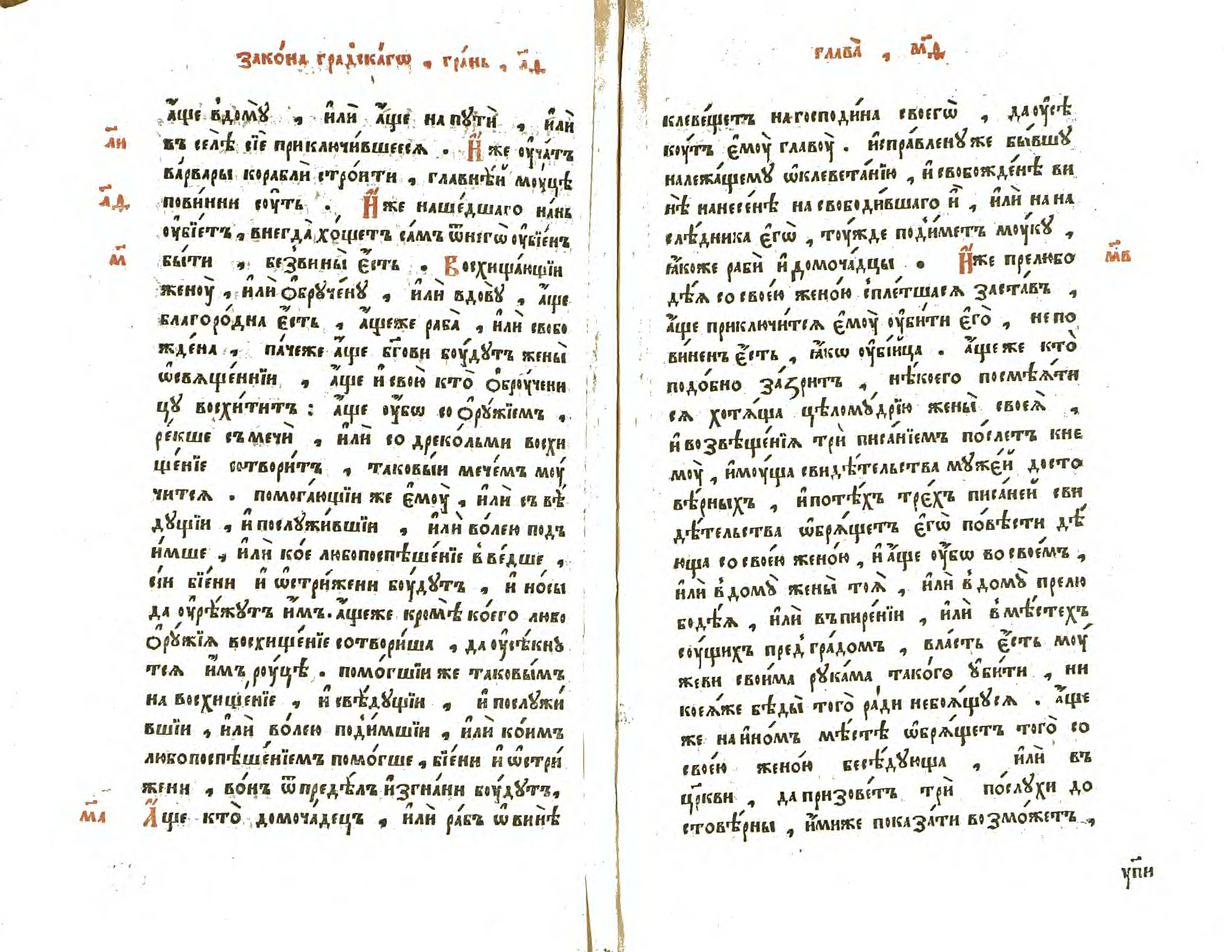 Зако́на гра́дскагѡ , гра́нь , л҃д
а҆́ще в̾дому̀ , и҆лѝ а҆́ще на пути̑ , и҆лѝ
л҃и
въ селѣ̀ сїѐ приключи́вшееся . И҆̀же оу҆ча́тъ
ва́рвары кораблѝ стро́ити , главнѣ́й моу́цѣ
л҃д
пови́нни соу́ть . И҆̀же наше́дшаго на́нь
оу҆бїе́тъ , внегда̀ хо́щетъ са́мъ ѿнегѡ̀ оу҆бїе́нъ
м҃
бы́ти , без̾вины̀ є҆́сть . Восхища́ющїи
женоу̀ , и҆лѝ ѻ҆бруче́ну , и҆лѝ вдову̀ , а҆́ще
благоро́дна є҆́сть , а҆́щеже раба̀ , и҆лѝ свобо
жде́на , па́чеже а҆́ще бг҃ови боу́дутъ жены̀
ѡ҆свяще́ннїи , а҆́ще и҆ свою̀ кто̀ ѻ҆броучени
цу восхи́титъ : а҆́ще оу҆́бѡ со ѻ҆рꙋ́жїемъ ,
ре́кше съ мечѝ , и҆лѝ со дреко́льми восхи
ще́нїе сотвори́тъ , таковы́и мече́мъ моу́
чится . помога́ющїи же є҆моу̀ , и҆лѝ съ вѣ́
дущїи , и҆ послужи́вшїи , и҆лѝ во́лею под̾
и́мше , и҆лѝ ко́е любопоспѣше́нїе в̾ве́дше ,
сїи бїе́ни и҆ ѡ҆стри́жени боу́дутъ , и҆ но́сы
да оу҆рѣ́жутъ и҆̀мъ . а҆́щеже кромѣ̀ ко́его любо
ѻ҆рꙋ́жїя восхище́нїе сотвори́ша , да оу҆сѣ́кну
тся и҆̀мъ роу́цѣ . помо́гшїи же таковы́мъ
на восхище́нїе , и҆ свѣ́дущїи , и҆ послужи́
вшїи , и҆лѝ во́лею поди́мшїи , и҆лѝ ко́имъ
любопоспѣше́нїемъ помо́гше , бїе́ни и҆ ѡ҆стри́
жени , во́нъ ѿпредѣ́лъ и҆згна́ни боу́дутъ .
м҃а
А҆́ще кто̀ домоча́децъ , и҆лѝ ра́бъ ѡ҆ винѣ̀
глава̀ , м҃д
клеве́щетъ на господи́на своегѡ̀ , да оу҆сѣ
коу́тъ є҆моу̀ главоу̀ . и҆спра́влену же бы́вшу
належа́щему ѡ҆клевета́нїю , и҆ свобожде́нѣ ви
нѣ̀ нанесе́нѣ на свободи́вшаго и҆̀ , и҆лѝ на на
слѣ́дника є҆гѡ̀ , тоу́жде поди́метъ моу́ку ,
м҃в
ꙗ҆́коже рабѝ и҆ домоча́дцы . И҆̀же прелюбо
дѣ́я со свое́ю жено́ю сплѣ́тшася заста́въ ,
а҆́ще приключи́тся є҆моу̀ оу҆би́ти є҆го̀ , не по
ви́ненъ є҆́сть , ꙗ҆́кѡ оу҆бі́йца . а҆́ще же кто̀
подо́бно за́зритъ , нѣ́коего посмѣ́яти
ся хотя́ща цѣлому́дрїю жены̀ своея̀ ,
и҆ возвѣще́нїя трѝ писа́нїемъ по́слетъ кне
моу̀ , и҆моу́ща свидѣ́тельства муже́й досто
вѣ́рныхъ , и҆ по тѣ́хъ тре́хъ писа́ней сви
дѣ́тельства ѡ҆бря́щетъ є҆го̀ по́вѣсти дѣ́
юща со свое́ю жено́ю , и҆ а҆́ще оу҆́бѡ во свое́мъ ,
и҆лѝ в̾дому̀ жены̀ тоя̀ , и҆лѝ в̾дому̀ прелю
бодѣ́я , и҆лѝ въ пире́нїи , и҆лѝ в̾мѣ́стехъ
соу́щихъ пред̾гра́домъ , вла́сть є҆́сть моу́
жеви свои́ма рука́ма тако́гѳ убѝти , ни
коея́же бѣды̀ того̀ ра́ди небоя́щуся . а҆́ще
же на и҆но́мъ мѣ́стѣ ѡ҆бря́щетъ того̀ со
свое́ю жено́ю бесѣ́дующа , и҆лѝ въ
цр҃кви , да призове́тъ трѝ по́слухи до
стовѣ́рны , и҆́миже показа́ти возмо́жетъ ,